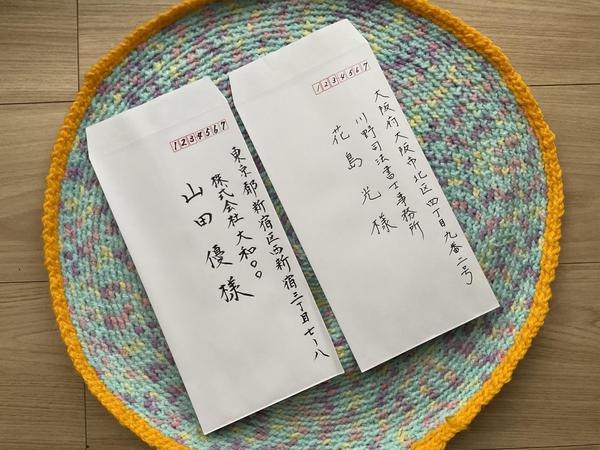 1234567
東京都新宿区西新宿三丁目七ー八
株式会社大和〇〇
山田優様
1234567
大阪府大阪市北区四丁目九番二号
川野司法書士事務所
花島光様